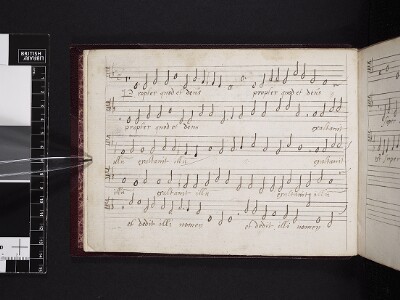 BRITISH
LIBRARY
Propter quod et deus propter quod et deus
propter quod et deus exaltavit
illu exaltavit illu exaltavit
illu exaltavit illu exaltavit illu
et dedit illi nomen et dedit illi nomen